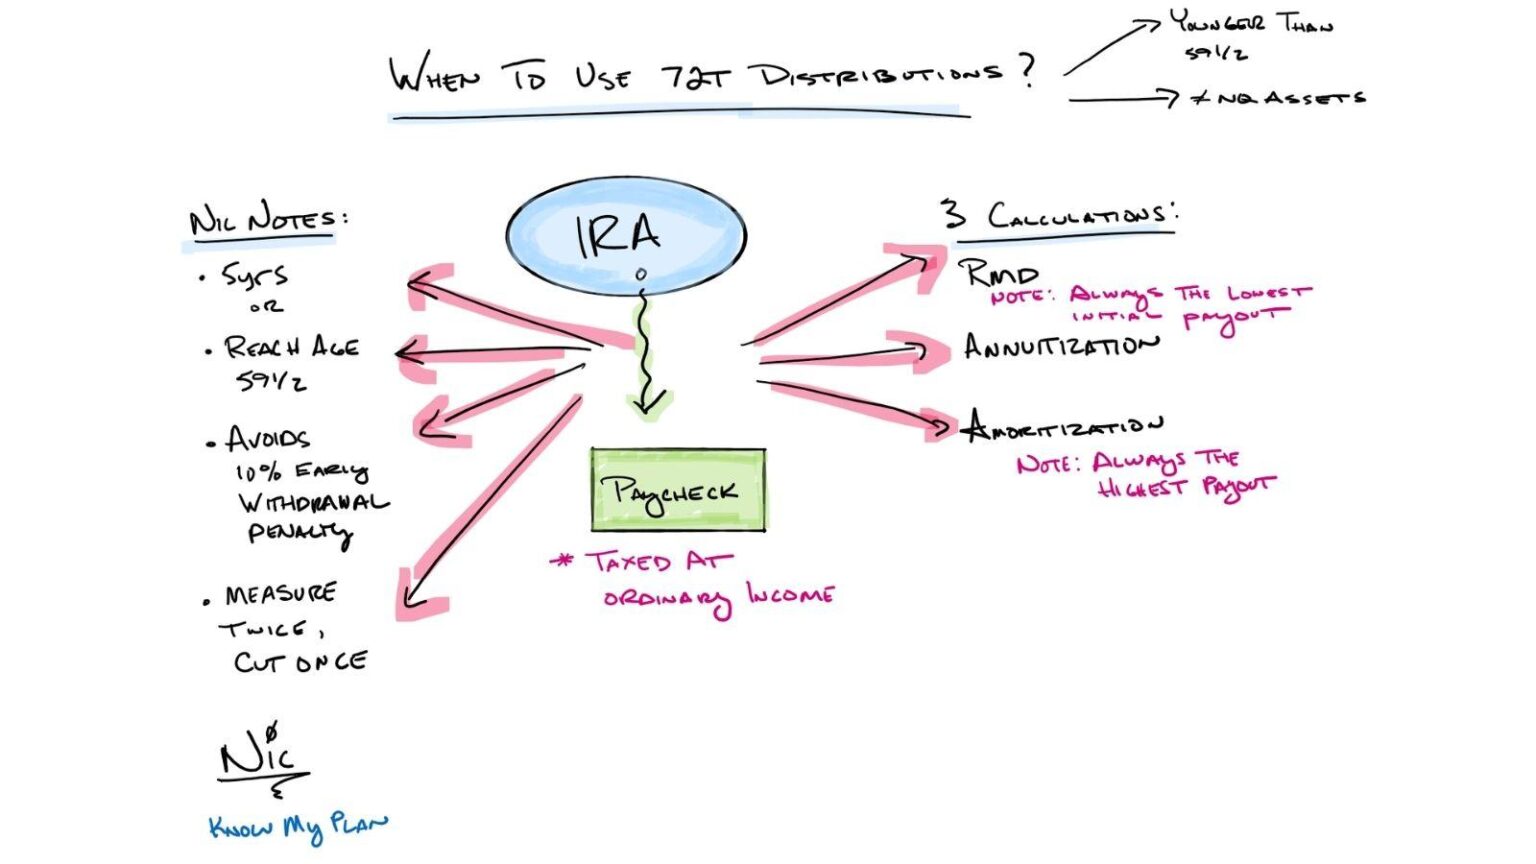 WHEN TO USE 72T DISTRIBUTIONS?
YOUNGER THAN
59 1/2
≠ NQ ASSETS
NIC NOTES:
• 5yrs
OR
• REACH AGE
59 1/2
• AVOIDS
10% EARLY
WITHDRAWAL
PENALTY
• MEASURE
TWICE,
CUT ONCE
NIC
KNOW MY PLAN
IRA
PAYCHECK
* TAXED AT
ORDINARY INCOME
3 CALCULATIONS:
RMD
NOTE: ALWAYS THE LOWEST
INITIAL PAYOUT
ANNUITIZATION
AMORITIZATION
NOTE: ALWAYS THE
HIGHEST PAYOUT